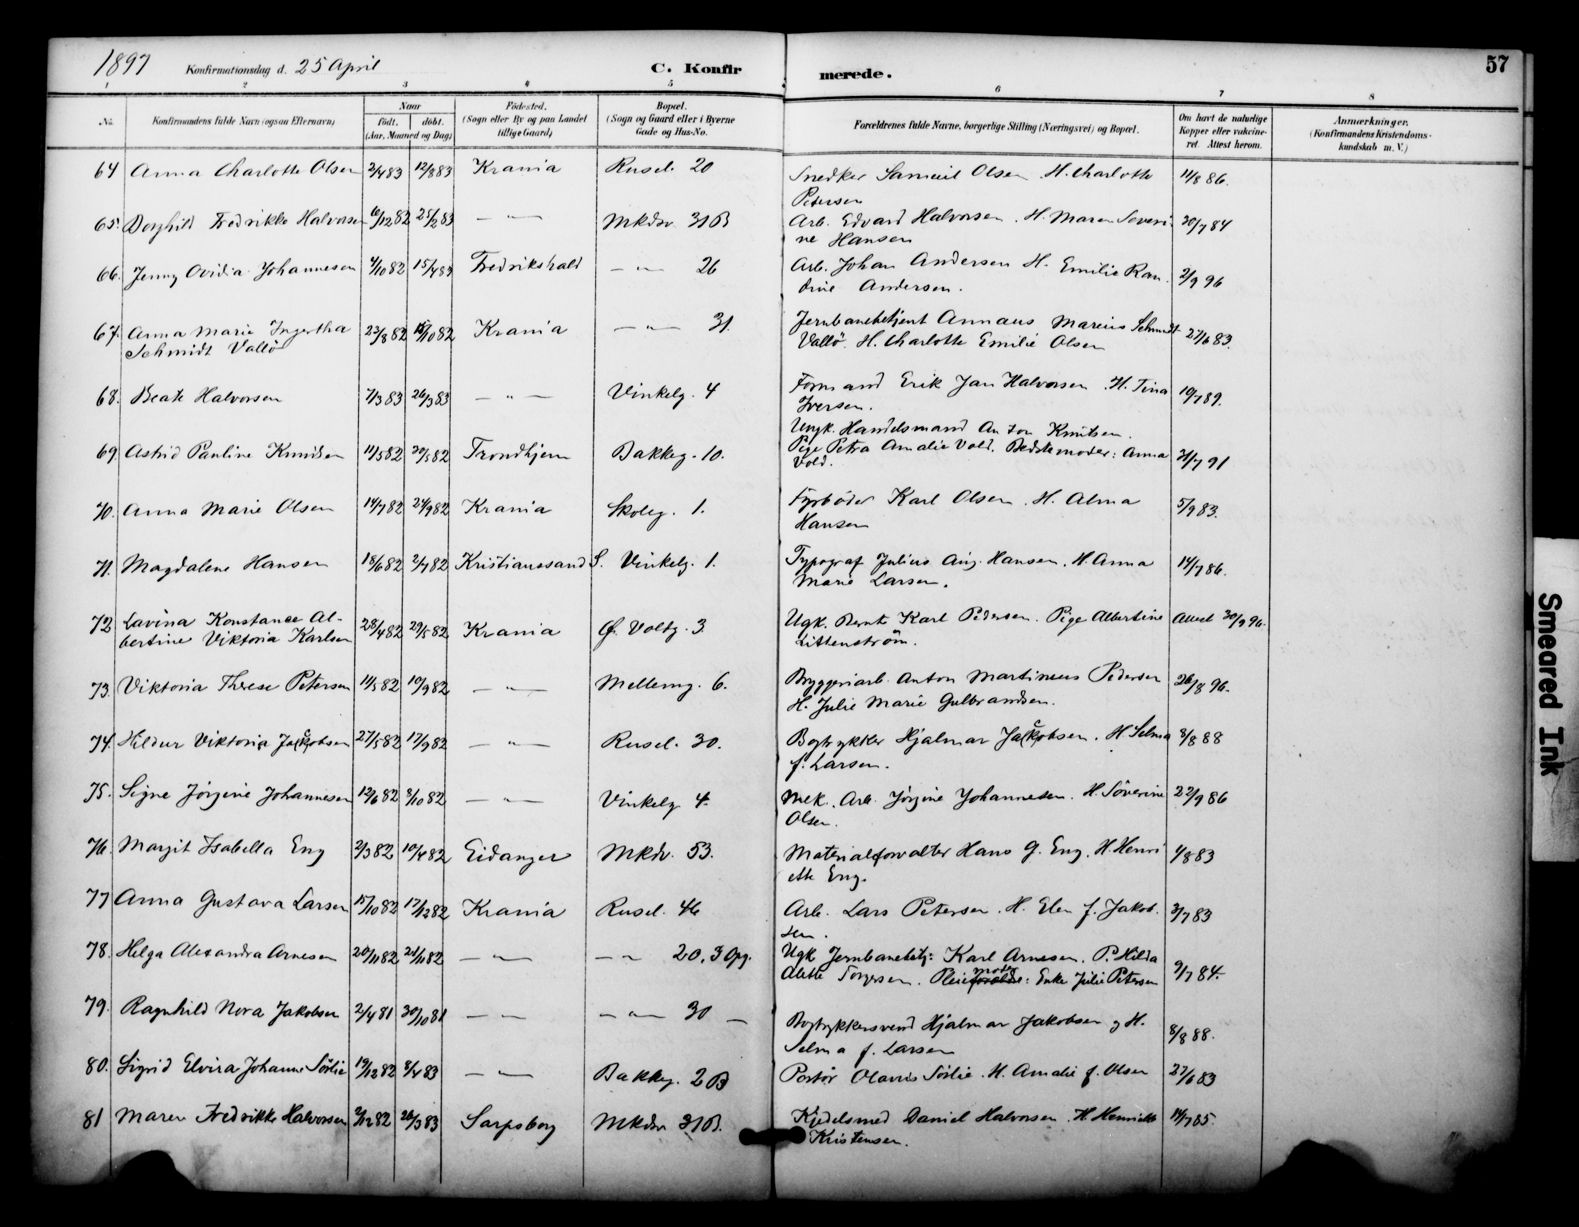 1897 Konfirmationsdag d. 25 April C. Konfirmerede. 57
1 2 3 4 5 6 7 8
No. Konfirmandens fulde Navn (ogsaa Efternavn) Naar født. døbt. (Aar, Maaned og Dag) Fødested. (Sogn eller By og paa Landet tillige Gaard) Bopæl. (Sogn og Gaard eller i Byerne Gade og Hus-No. Forældrenes fulde Navne, borgerlige Stilling (Næringsvei) og Bopæl. Om havt de naturlige Kopper eller vaccineret. Attest herom. Anmærkninger. (Konfirmandens Kristendomskundskab m. V.)
64 Anna Charlotte Olsen 2/4 83 12/8 83 Krania Rusel. 20 Snedker Samuel Olsen . H. Charlotte 11/8 86.
Petersen
65. Dorghild Fredrikke Halvorsen 6/12 82 25/2 83 — " — Mkdsv 31 B Arb. Edvard Halvorsen . H. Maren Severi- 30/7 84
ne Hansen
66. Jenny Ovidia Johannesen 4/10 82 15/4 83 Fredrikshald — " — 26 Arb. Johan Andersen H. Emilie Ran- 2/9 96
dine Andersen.
67. Anna Marie Ingertha 23/8 82 15/10 82 Krania — " — 31. Jernbanebetjent Annæus Marcius Schmidt 27/6 83.
Schmidt Vallö Vallö. H. Charlotte Emilie Olsen
68. Beate Halvorsen 7/3 83 26/3 83 — " — Vinkelg. 4 Formand Erik Jan Halvorsen . H. Tina 19/7 89.
Iversen.
Ungk. Handelsmand Anton Knutsen.
69. Astrid Pauline Knudsen 11/5 82 29/5 82 Trondhjem Bakkeg. 10. Pige Petra Amalie Vold. Bedstemoder: Anna 31/7 91
Vold.
70. Anna Marie Olsen 14/7 82 24/9 82 Krania Skoleg. 1. Fyrbøder Karl Olsen . H. Alma 5/9 83.
Hansen
71. Magdalene Hansen 18/6 82 2/7 82 Kristianssand S. Vinkelg. 1. Typograf Julius Aug. Hansen . H. Anna 14/7 86.
Marie Larsen.
72. Lavina Konstance Al- 28/4 82 29/5 82 Krania Ø. Voldg. 3 Ugk. Bernt Karl Pedersen. Pige Albertine Attest 30/9 96.
bertine Viktoria Karlsen Littenström.
73. Viktoria Therese Petersen 11/5 82 10/9 82 — " — Mellemg. 6. Bryggeriarb. Anton Martinius Pedersen 26/8 96.
H. Julie Marie Gulbrandsen.
74. Hildur Viktoria Jakobsen 27/5 82 17/9 82 — " — Rusel. 30. Bogtrykker Hjalmar Jakobsen . H. Selma 8/8 88
f. Larsen.
75. Signe Jörgine Johannesen 12/6 82 8/10 82 — " — Vinkelg 4. Mek. Arb. Jörgine Johannesen . H. Söverine 22/9 86
Olsen.
76. Margit Isabella Eng 2/3 82 10/4 82 Eidanger Mkdv. 53. Materialforvalter Hans G. Eng. H. Henri 4/8 83
ette Eng.
77 Anna Gustava Larsen 15/10 82 17/12 82 Krania Rusel. 46 Arb. Lars Petersen . H. Elen f. Jakob- 3/7 83
sen.
78. Helga Alexandra Arnesen 20/11 82 21/11 82 — " — — " — 20. 3 Opg. Ugk Jernbanebetj: Karl Arnesen. P. Hilda 9/7 84.
Alette Torgersen. Pleiemoder: Enke Julie Petersen
79. Ragnhild Nora Jakobsen 2/4 81 30/10 81 — " — — " — 30 — Bogtrykkersvend Hjalmar Jakobsen og H. 8/8 88.
Selma f. Larsen
80. Sigrid Elvira Johanne Sörlie 19/12 82 8/4 83 — " — Bakkeg. 2 B Portör Olavus Sörlie . H. Amalie f. Olsen 27/6 83
81 Maren Fredrikke Halvorsen 2/12 82 26/3 83 Sarpsborg Mkdsv 31 B. Kjedelsmed Daniel Halvorsen . H. Henriette 14/7 85.
Kristensen.
Smeared Ink